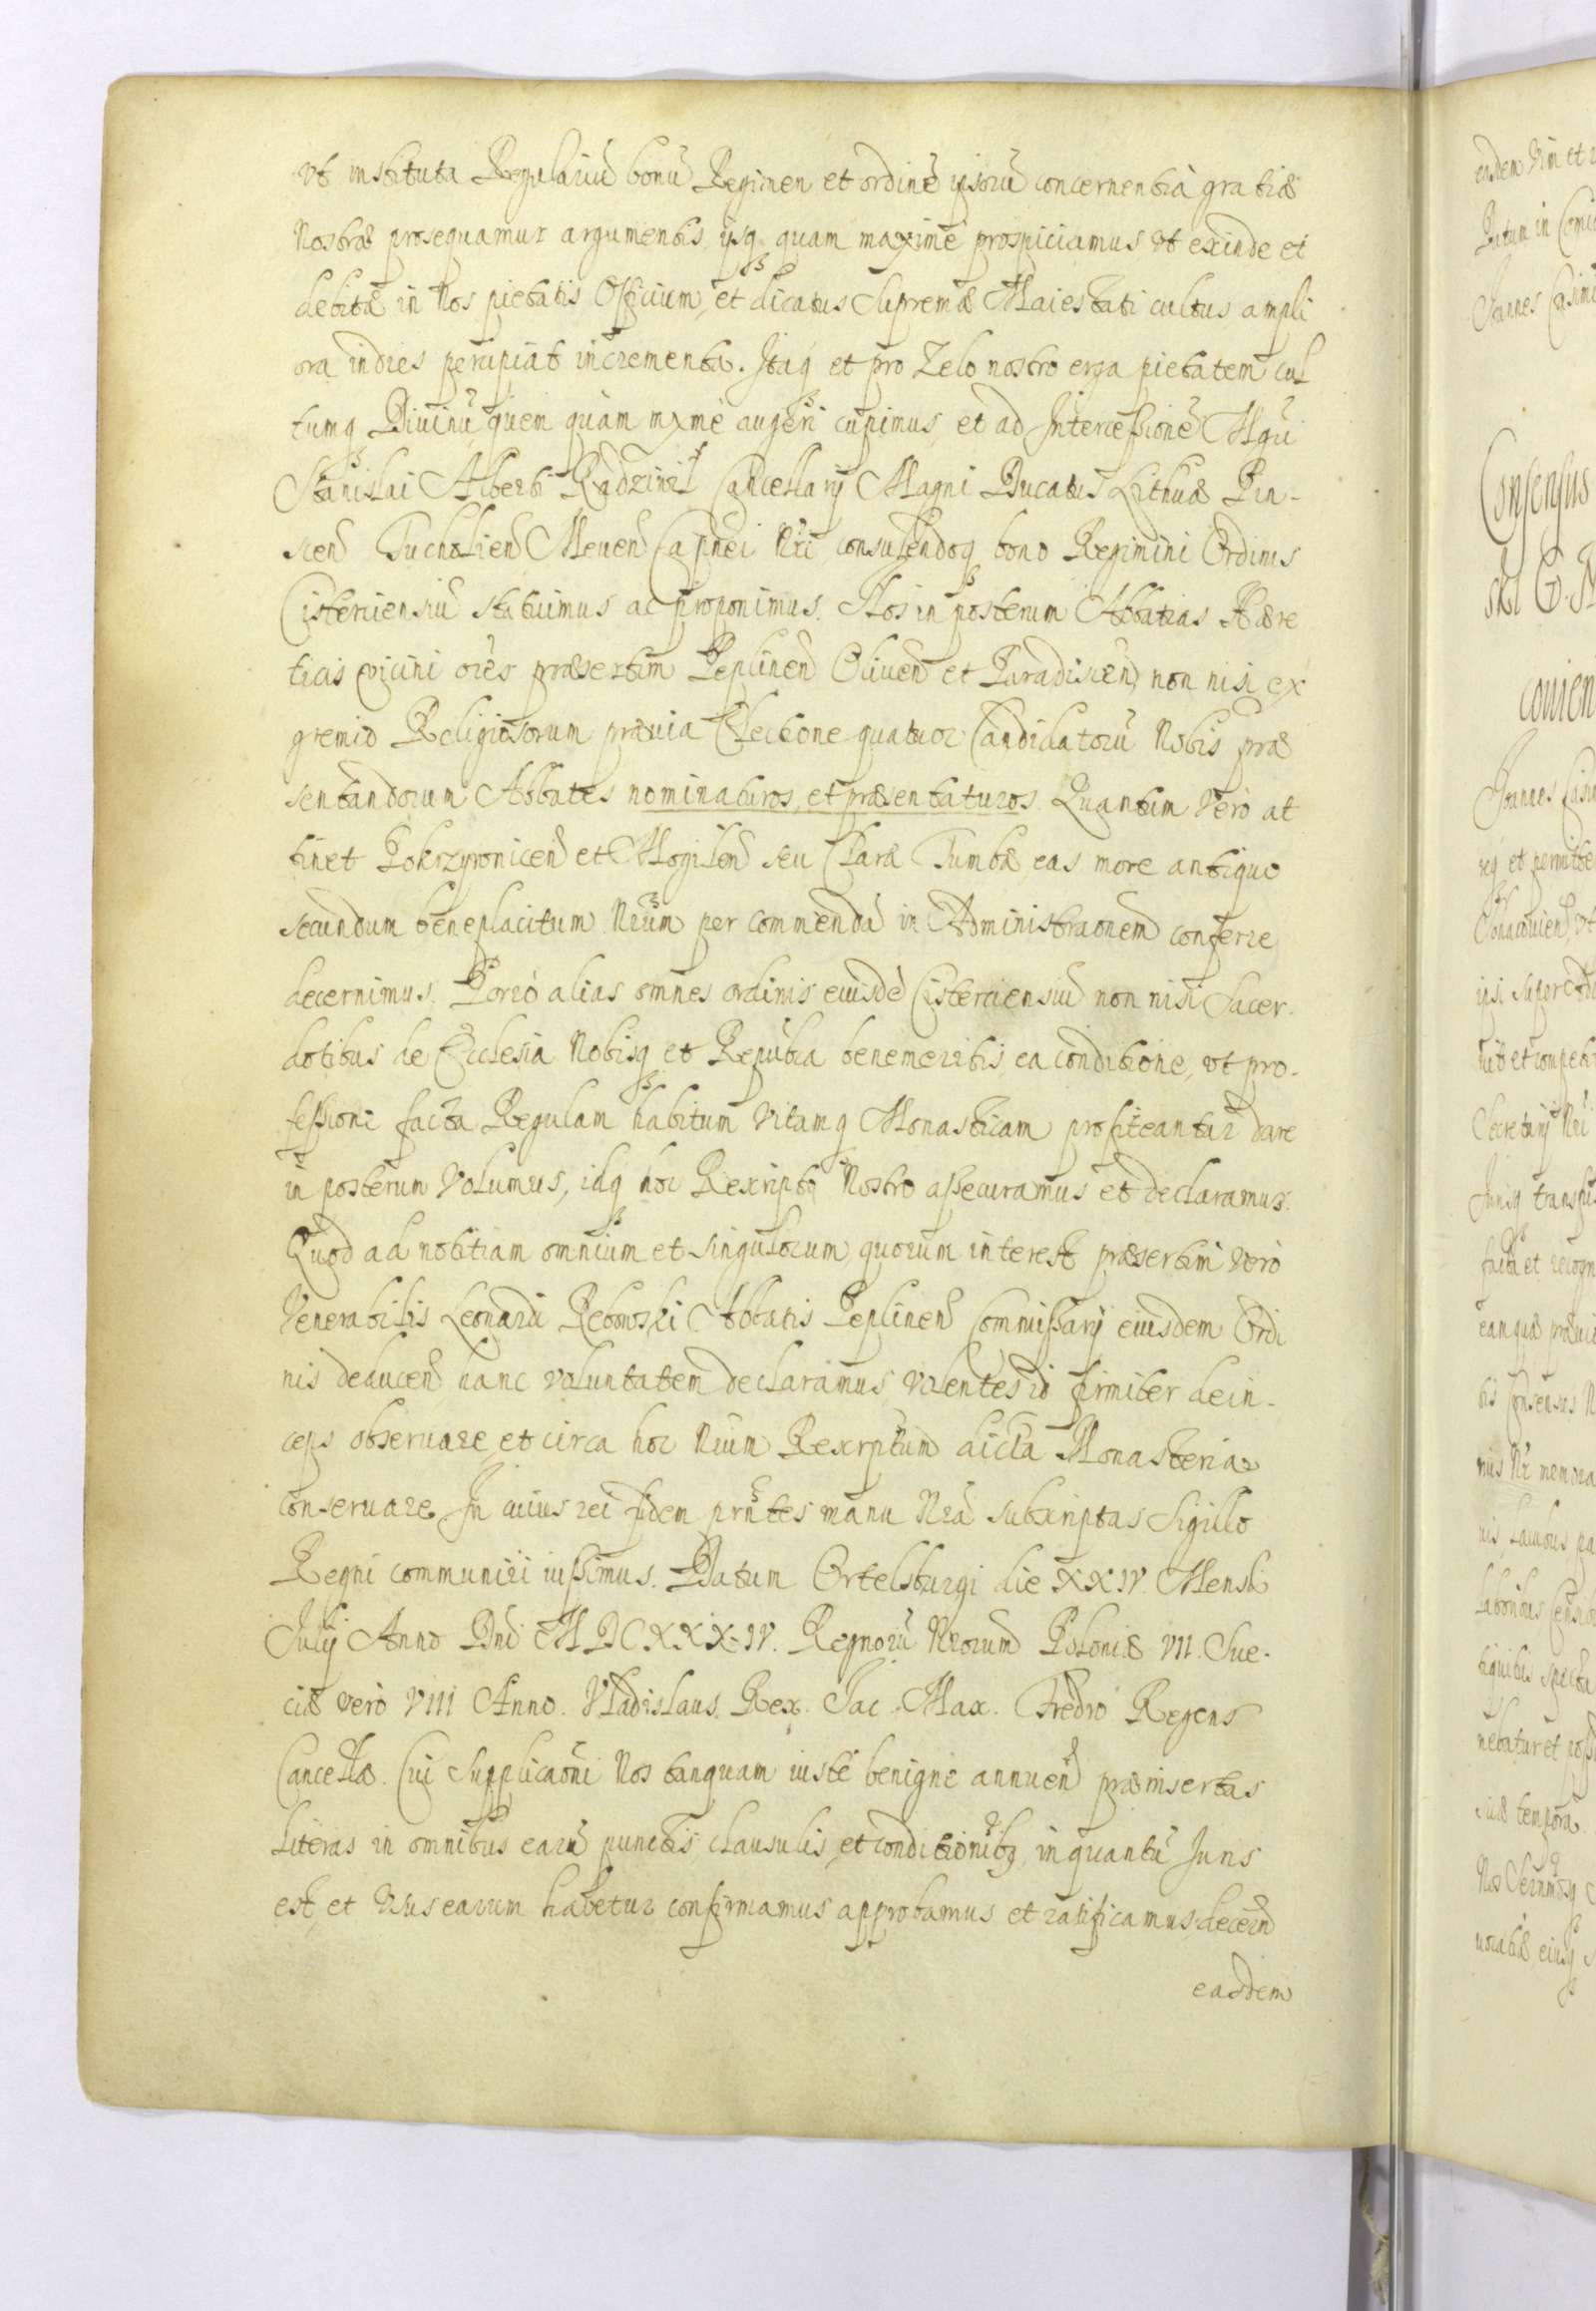 vt instituta Regulariũ bonũ Regimen et ordinẽ ipsorũ concernentia gratiæ
Nostræ prosequamur argumentis, ijsq quam maximè prospiciamus, vt exinde et
debitæ in Nos pietatis Officium, et dicatus Supremæ Maiestati cultus ampli
ora indies percipiat incrementa. Itaq et pro Zelo nostro erga pietatem cul
tumq Diuinũ quem quàm mxmè augeri cupimus, et ad Intercessionẽ Mgci
Stanislai Alberti Radziwił Cancellarij Magni Ducatus Lithuæ Pin-
scen Tucholien Meuen Capnei Nri consulendoq bono Regimini Ordinis
Cisterciensiũ statuimus ac proponimus. Nos in posterum Abbatias Hære
ticis vicini ores præsertim Peplinen Oliuen et Paradisien, non nisi ex
gremio Religiosorum præuia Electione quatuor Candidatorũ Nobis præ
sentandorum Abbates nominaturos, et præsentaturos. Quantum Verò at
tinet Pokrzywnicen et Mogilen seu Claræ Tumbæ, eas more antiquo
secundum beneplacitum Nrum per commendà in Administraonem conferre
decernimus. Porrò alias omnes ordinis eiusdè Cisterciensiũ non nisi Sacer-
dotibus de Ecclesia Nobisq et Republca benemeritis, ea conditione, vt pro-
fessione facta Regulam habitum Vitamq Monasticam profiteantur dare
in posterum Volumus, idq hoc Rescripto Nostro assecuramus et declaramus.
Quod ad notitiam omnium et singulorum, quorum interest præsertim Verò
Venerabilis Leonardi Rębowski Abbatis Peplinen Commissarij eiusdem Ordi
nis deducen hanc voluntatem declaramus, Volentes id firmiter dein-
ceps obseruare, et circa hoc Nrum Rescrptum dicta Monasteria
conseruare. In cuius rei fidem prntes manu Nra subscriptas Sigillo
Regni communiri iussimus. Datum Ortelsburgi die XXIV. Mensis
Julij Anno Dni MDCXXXIV. Regnorũ Nrorum Poloniæ VII. Sue-
ciæ verò VIII Anno. Vladislaus Rex. Jac. Max. Fredro Regens
Cancellæ. Cui Supplicaõni Nos tanquam iustæ benignè annuen præinsertas
Literas in omnibus earũ punctis, clausulis, et conditionibq, inquantũ Juris
est, et Vsus earum habetur confirmamus approbamus et ratificamus, decern
easdem